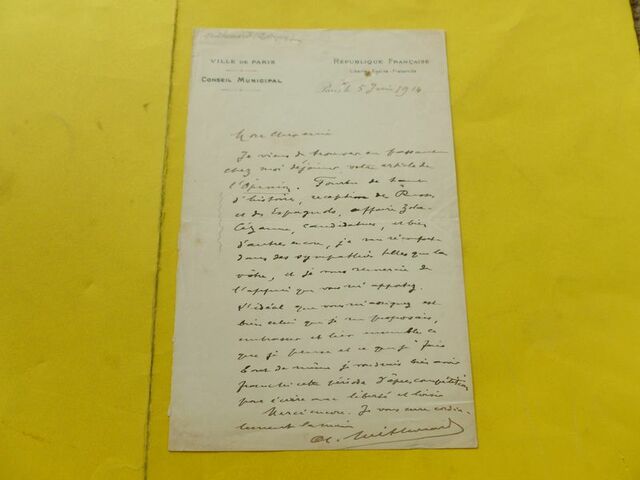 VILLE DE PARIS
CONSEIL MUNICIPAL
RÉPUBLIQUE FRANÇAISE
Liberté - Égalité - Fraternité
Paris, le 5 Juin 1914
Mon cher ami
Je viens de trouver en passant
chez moi déjeuner votre article de
l'Opinion.
d'histoire, réception de
et des Espagnols, affaire Zola
Cézanne, candidature, et bien
d'autres encore, je me réconforte
dans des sympathies telles que la
vôtre, et je vous remercie de
l'appui que vous m'apportez.
L'idéal que vous m'assignez est
bien celui que je me proposais,
embrasser et lier ensemble ce
que je pense et ce que je fais
tout de même je voudrais bien avoir
franchi cette période d'âpre compétition
pour écrire avec liberté et loisir
Merci encore. Je vous serre cordia-
lement la main